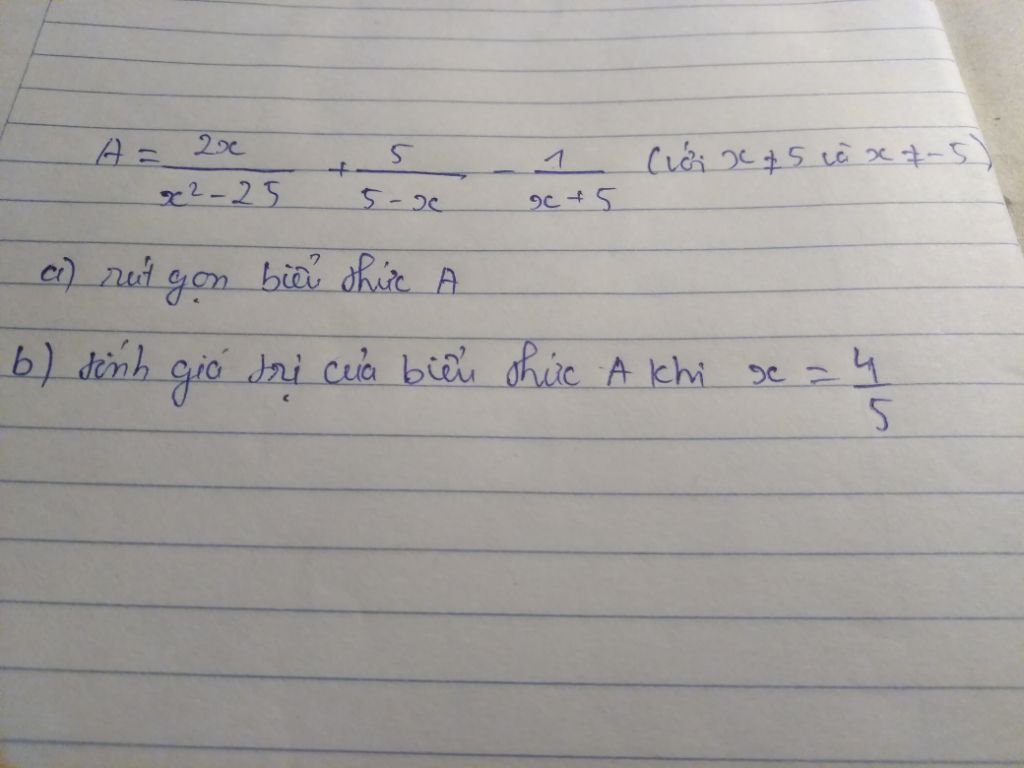 A = \frac{2x}{x^2-25} + \frac{5}{5-x} - \frac{1}{x+5} (với x ≠ 5 và x ≠ -5)
a) rút gọn biểu thức A
b) tính giá trị của biểu thức A khi x = \frac{4}{5}